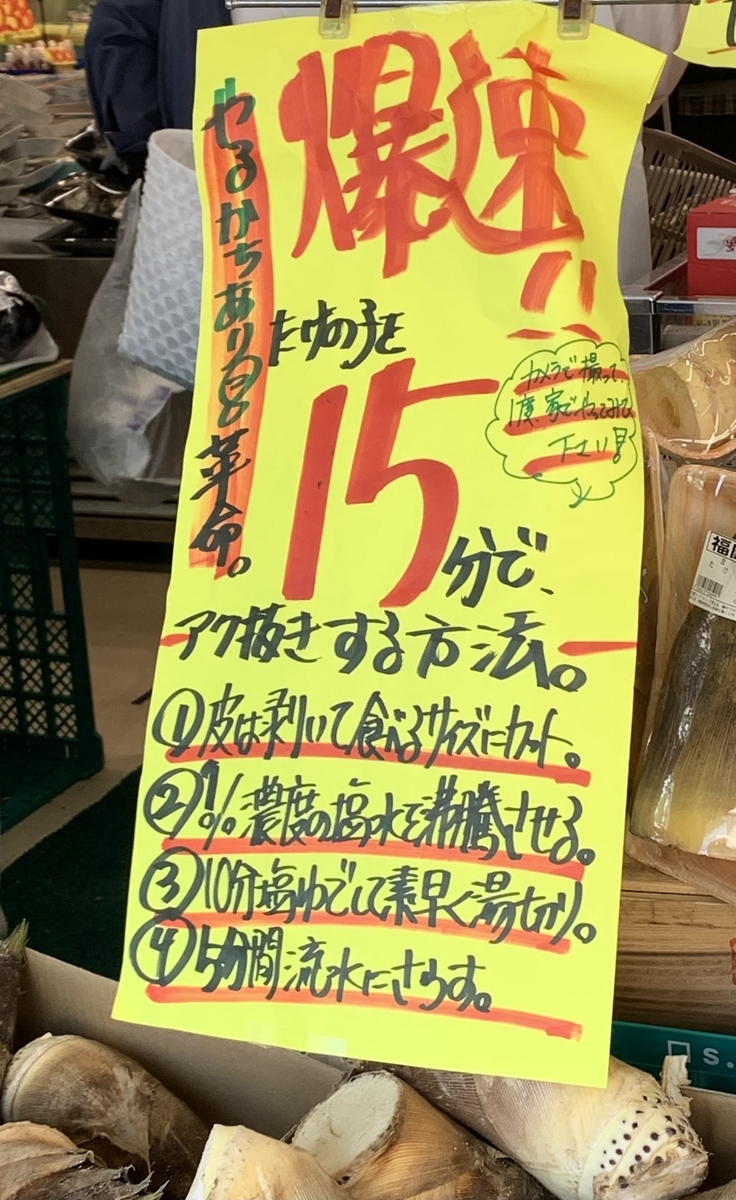 爆速!!
やるかちあり!!革命。
たけの子を
15分で、
アク抜きする方法。
カメラで撮って、
1度、家でやってみて
下さい!
①皮は剥いて食べるサイズにカット。
②1%濃度の塩水を沸騰させる。
③10分塩ゆでして素早く湯切り。
④5分間流水にさらす。
福
s.